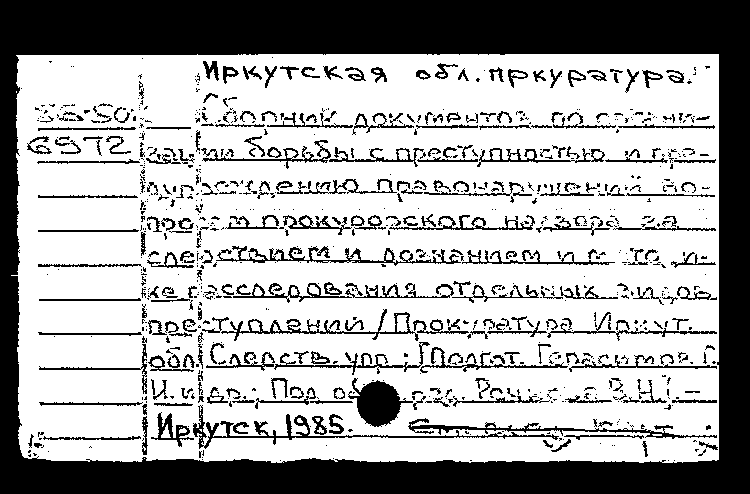 Иркутская обл. пркуратура.
86-50.
Сборник документов по органи-
6972
зации борьбы с преступностью и пре-
дупреждению правонарушений, во-
просам прокурорского надзора за
следствием и дознанием и методи-
ке расследования отдельных видов
преступлений / Прокуратура Иркут.
обл. Следств. упр.; [Подгот. Герасимов Г.
И. и др.; Под общ. ред. В.Н.]. –
Иркутск, 1985.